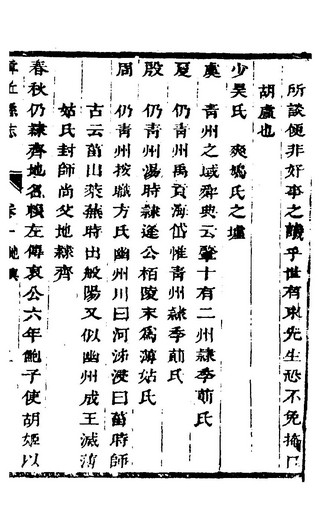 所談便非好事之議乎世有東先生恐不免掩口
胡盧也
少昊氏 爽鳩氏之墟
虞 青州之域舜典云肇十有二州隸季萴氏
夏 仍青州禹貢海岱惟青州隸季萴氏
殷 仍青州湯時隸逄公栢陵末為薄姑氏
周 仍青州按職方氏幽州川曰河泲浸曰菑時師
古云菑山萊蕪時出般陽又似幽州成王滅薄
姑氏封師尚父地隸齊
春秋仍隸齊地名賴左傳哀公六年鮑子使胡姬以
章丘縣志
卷一